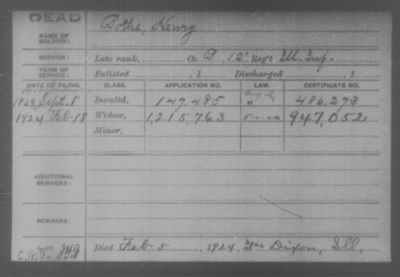 DEAD
NAME OF SOLDIER: Pothe, Henry
SERVICE: Late rank, Co. B, 12" Reg't Ill. Inf.
TERM OF SERVICE: Enlisted , 1 Discharged , 1
DATE OF FILING. CLASS. APPLICATION NO. LAW. CERTIFICATE NO.
Sept. 5 Invalid, 147,485 486,273
1924 Feb-18 Widow, 1,215,763 5-1-20 947,052
Minor,
ADDITIONAL SERVICES:
REMARKS:
Died Feb-5, 1924, Dixon, Ill,